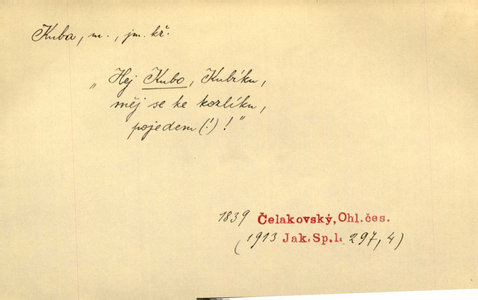 Kuba, m., jm. kř.
„Hej Kubo, Kubíku,
měj se ke kozlíku,
pojedem(!)!"
1839 Čelakovský, Ohl.čes.
(1913 Jak.Sp.l. 297,4)